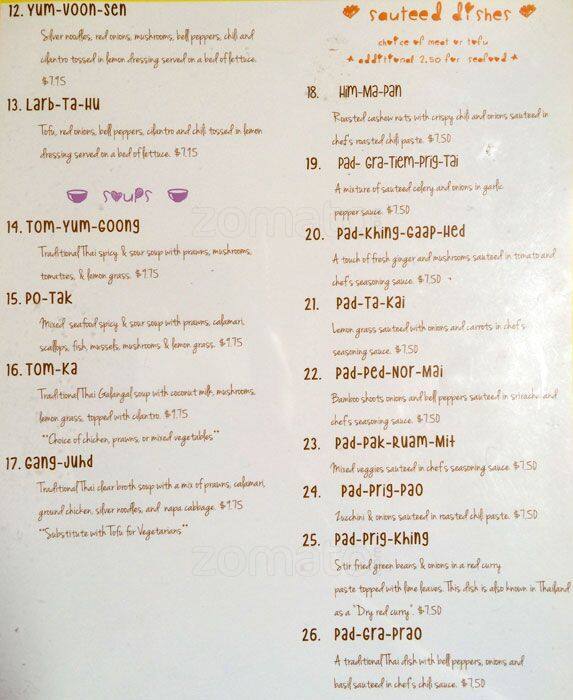 12. Yum-Voon-Sen
Silver noodles, red onions, mushrooms, bell peppers, chili and
cilantro tossed in lemon dressing served on a bed of lettuce.
$7.95
13. Larb-Ta-Hu
Tofu, red onions, bell peppers, cilantro and chili tossed in lemon
dressing served on a bed of lettuce. $7.95
Soups
14. Tom-Yum-Goong
Traditional Thai spicy & sour soup with prawns, mushrooms,
tomatoes, & lemon grass. $9.75
15. Po-Tak
Mixed seafood spicy & sour soup with prawns, calamari,
scallops, fish, mussels, mushrooms & lemon grass. $9.75
16. Tom-Ka
Traditional Thai Galangal soup with coconut milk, mushrooms,
lemon grass, topped with cilantro. $9.75
**Choice of chicken, prawns, or mixed vegetables**
17. Gang-Juhd
Traditional Thai clear broth soup with a mix of prawns, calamari,
ground chicken, silver noodles, and napa cabbage. $9.75
**Substitute with Tofu for Vegetarians**
Sauteed Dishes
choice of meat or tofu
* additional 2.50 for seafood *
18. Him-Ma-Pan
Roasted cashew nuts with crispy chili and onions sauteed in
chef's roasted chili paste. $7.50
19. Pad- Gra-Tiem-Prig-Tai
A mixture of sauteed celery and onions in garlic
pepper sauce. $7.50
20. Pad-Khing-Gaap-Hed
A touch of fresh ginger and mushrooms sauteed in tomato and
chef's seasoning sauce. $7.50
21. Pad-Ta-Kai
Lemon grass sauteed with onions and carrots in chef's
seasoning sauce. $7.50
22. Pad-Ped-Nor-Mai
Bamboo shoots onions and bell peppers sauteed in sriracha and
chef's seasoning sauce. $7.50
23. Pad-Pak-Ruam-Mit
Mixed veggies sauteed in chef's seasoning sauce. $7.50
24. Pad-Prig-Pao
Zucchini & onions sauteed in roasted chili paste. $7.50
25. Pad-Prig-Khing
Stir fried green beans & onions in a red curry
paste topped with lime leaves. This dish is also known in Thailand
as a "Dry red curry". $7.50
26. Pad-Gra-Prao
A traditional Thai dish with bell peppers, onions and
basil sauteed in chef's chili sauce. $7.50
zomato
zomato